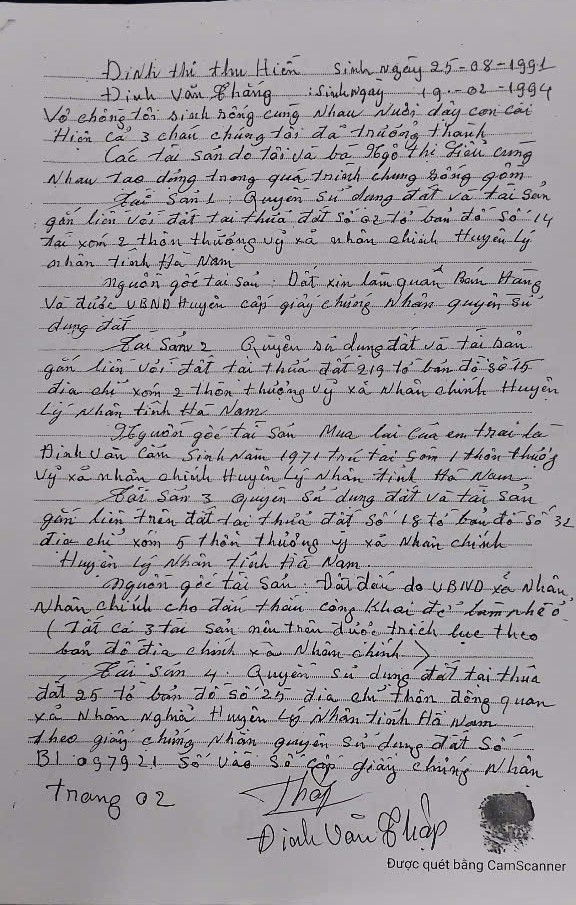 Đinh thị thu Hiền sinh ngày 25-08-1991
Đinh Văn Thắng : sinh ngày 19-02-1994
Vợ chồng tôi sinh sống cùng nhau nuôi dạy con cái
Hiện cả 3 cháu chúng tôi đã trưởng thành
Các tài sản do tôi và bà Ngô thị Liễu cùng
nhau tạo dựng trong quá trình chung sống gồm
Tài sản 1: Quyền sử dụng đất và tài sản
gắn liền với đất tại thửa đất số 02 tờ bản đồ số 14
tại xóm 2 thôn thượng vỹ xã nhân chính Huyện lý
nhân tỉnh Hà Nam
nguồn gốc tài sản: Đất xin làm quán Bán Hàng
Và được UBND Huyện cấp giấy chứng nhận quyền sử
dụng đất
Tài Sản 2 Quyền sử dụng đất và tài sản
gắn liền với đất tại thửa đất 219 tờ bản đồ số 15
địa chỉ xóm 2 thôn thượng vỹ xã nhân chính Huyện
Lý nhân tỉnh Hà Nam
Nguồn gốc tài sản Mua lại của em trai là
Đinh văn Cảm Sinh Năm 1971 trú tại xóm 1 thôn thượng
vỹ xã nhân chính Huyện Lý nhân tỉnh Hà Nam
Tài sản 3 quyền sử dụng đất và tài sản
gắn liền trên đất tại thửa đất số 18 tờ bản đồ số 32
địa chỉ xóm 5 thôn thượng vỹ xã Nhân chính
Huyện lý Nhân tỉnh Hà Nam.
nguồn gốc tài sản: Đất do UBND xã Nhân
Nhân chính cho đấu thầu công khai để
(Tất cả 3 tài sản nêu trên được trích lục theo
bản đồ địa chính xã Nhân chính)
Tài sản 4: Quyền sử dụng đất tại thửa
đất 25 tờ bản đồ số 25 địa chỉ thôn đồng quan
xã Nhân Nghĩa Huyện Lý Nhân tỉnh Hà Nam
theo giấy chứng nhận quyền sử dụng đất số
BI 097921 Số vào Sổ cấp giấy chứng Nhận
trang 02
Thập
Đinh Văn Thập
Được quét bằng CamScanner